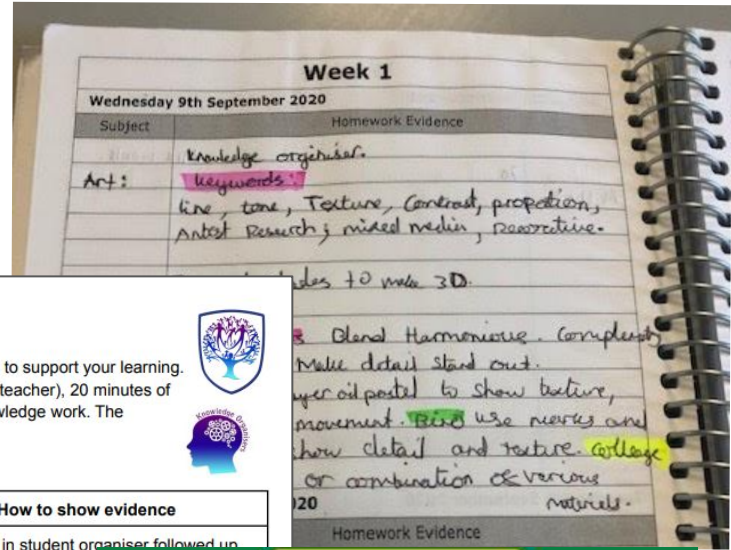 Week 1
Wednesday 9th September 2020
Subject Homework Evidence
Knowledge orginiser.
Art: keywords:
line, tone, Texture, Contrast, propotion,
Artist Research, mixed media, Decorative.
to make 3D.
Blend Harmonious.
Make detail stand out.
oil pastel to show texture,
movement. Biro use marks and
show detail and texture. Collage
or combination of various
materials.
20
Homework Evidence
to support your learning.
teacher), 20 minutes of
wledge work. The
Knowledge Organisers
How to show evidence
in student organiser followed up